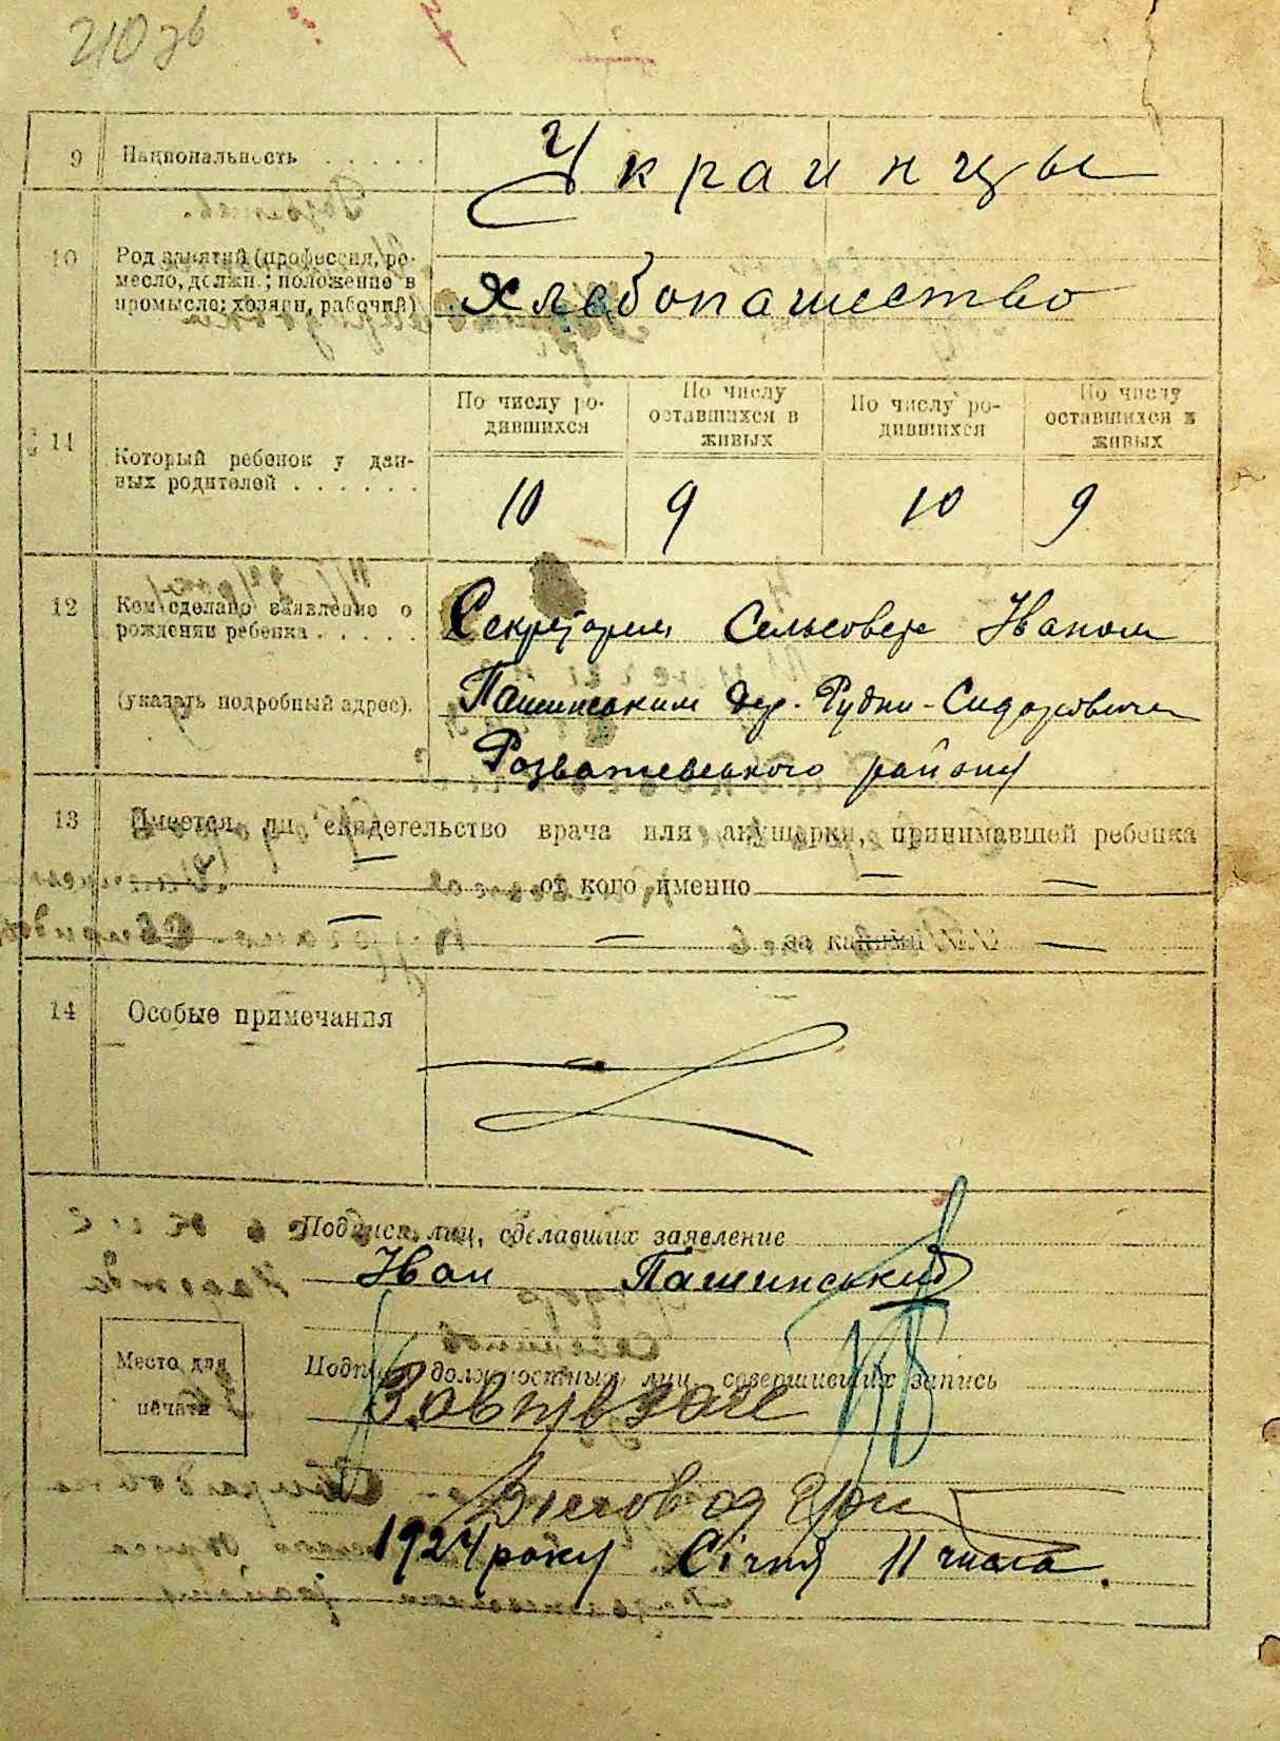 210 зв
9 Национальность . . . . . Украинцы
10 Род занятий (профессия, ре-
месло, должн.; положение в
промысле: хозяин, рабочий) Хлебопашество
11 Который ребенок у дан-
ных родителей . . . . . .
По числу ро-
дившихся
По числу
оставшихся в
живых
По числу ро-
дившихся
По числу
оставшихся в
живых
10 9 10 9
12 Кем сделано заявление о
рождении ребенка . . . . .
(указать подробный адрес).
Секретарем Сельсовета Иваном
Пашинським дер. Рудни-Сидоровичи
Розважевського району
13 Имеется ли свидетельство врача или акушерки, принимавшей ребенка
— от кого именно — —
— — за каким —
14 Особые примечания
Подписи лиц, сделавших заявление
Иван Пашинський
Место для
печати
Подписи должностных лиц, совершивших запись
1924 року Січня 11 числа.